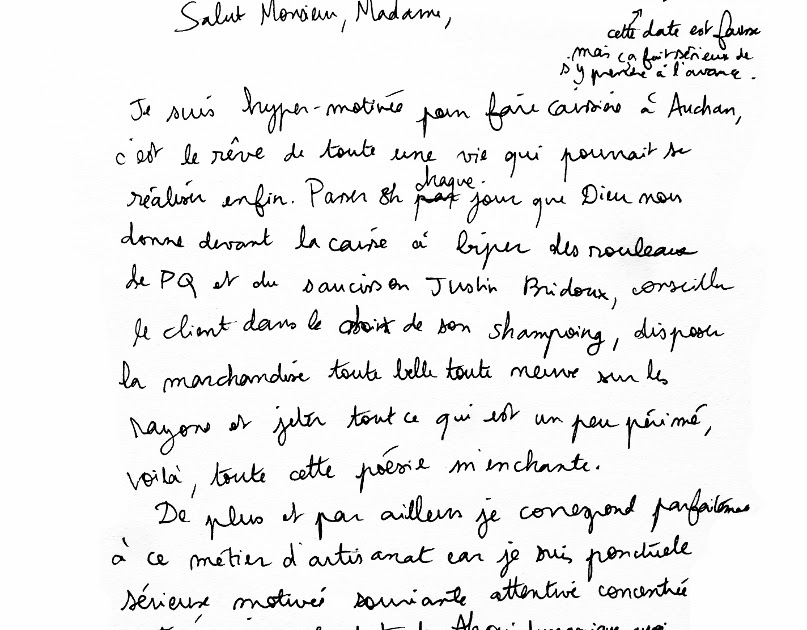 Salut Monsieur, Madame,
cette date est fausse
mais ça fait sérieux de
s'y prendre à l'avance.
Je suis hyper-motivée pour faire caissière à Auchan,
c'est le rêve de toute une vie qui pourrait se
réaliser enfin. Passer 8h par chaque jour que Dieu nous
donne devant la caisse à biper des rouleaux
de PQ et du saucisson Justin Bridoux, conseiller
le client dans le choix de son shampoing, disposer
la marchandise toute belle toute neuve sur les
rayons et jeter tout ce qui est un peu périmé,
voilà, toute cette poésie m'enchante.
De plus et par ailleurs je correspond parfaitement
à ce métier d'artisanat car je suis ponctuelle
sérieuse motivée souriante attentive concentrée